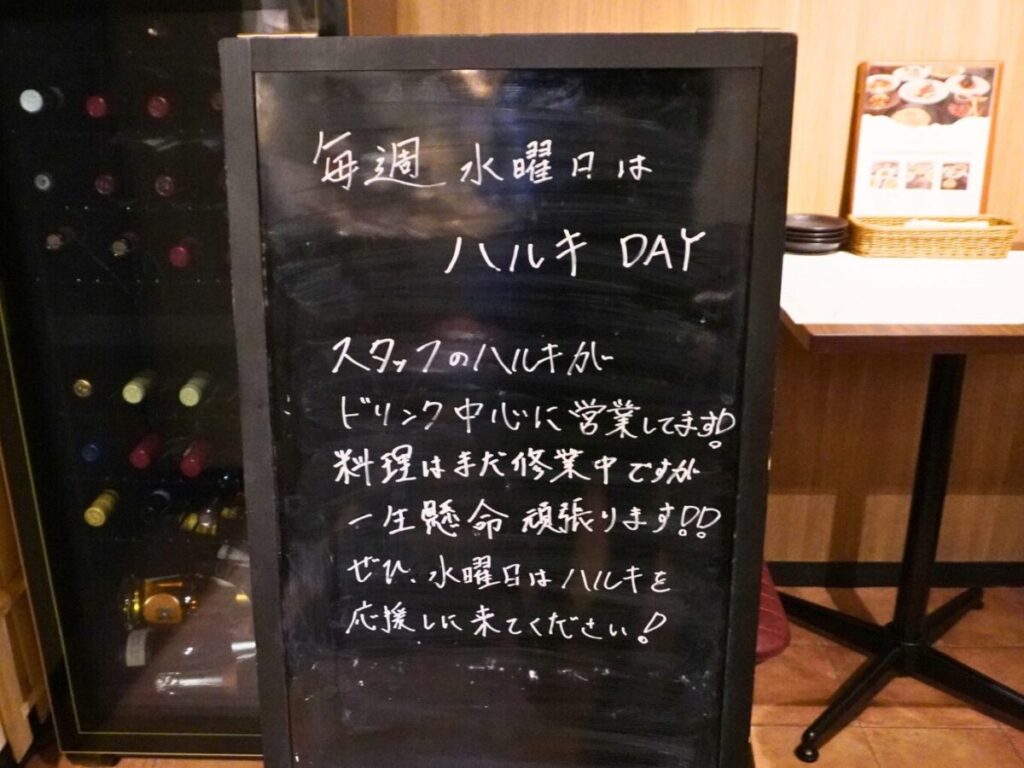 毎週 水曜日は
ハルキ DAY
スタッフのハルキが
ドリンク中心に営業してます!
料理はまだ修業中ですが
一生懸命頑張ります!!
ぜひ、水曜日はハルキを
応援しに来てください!